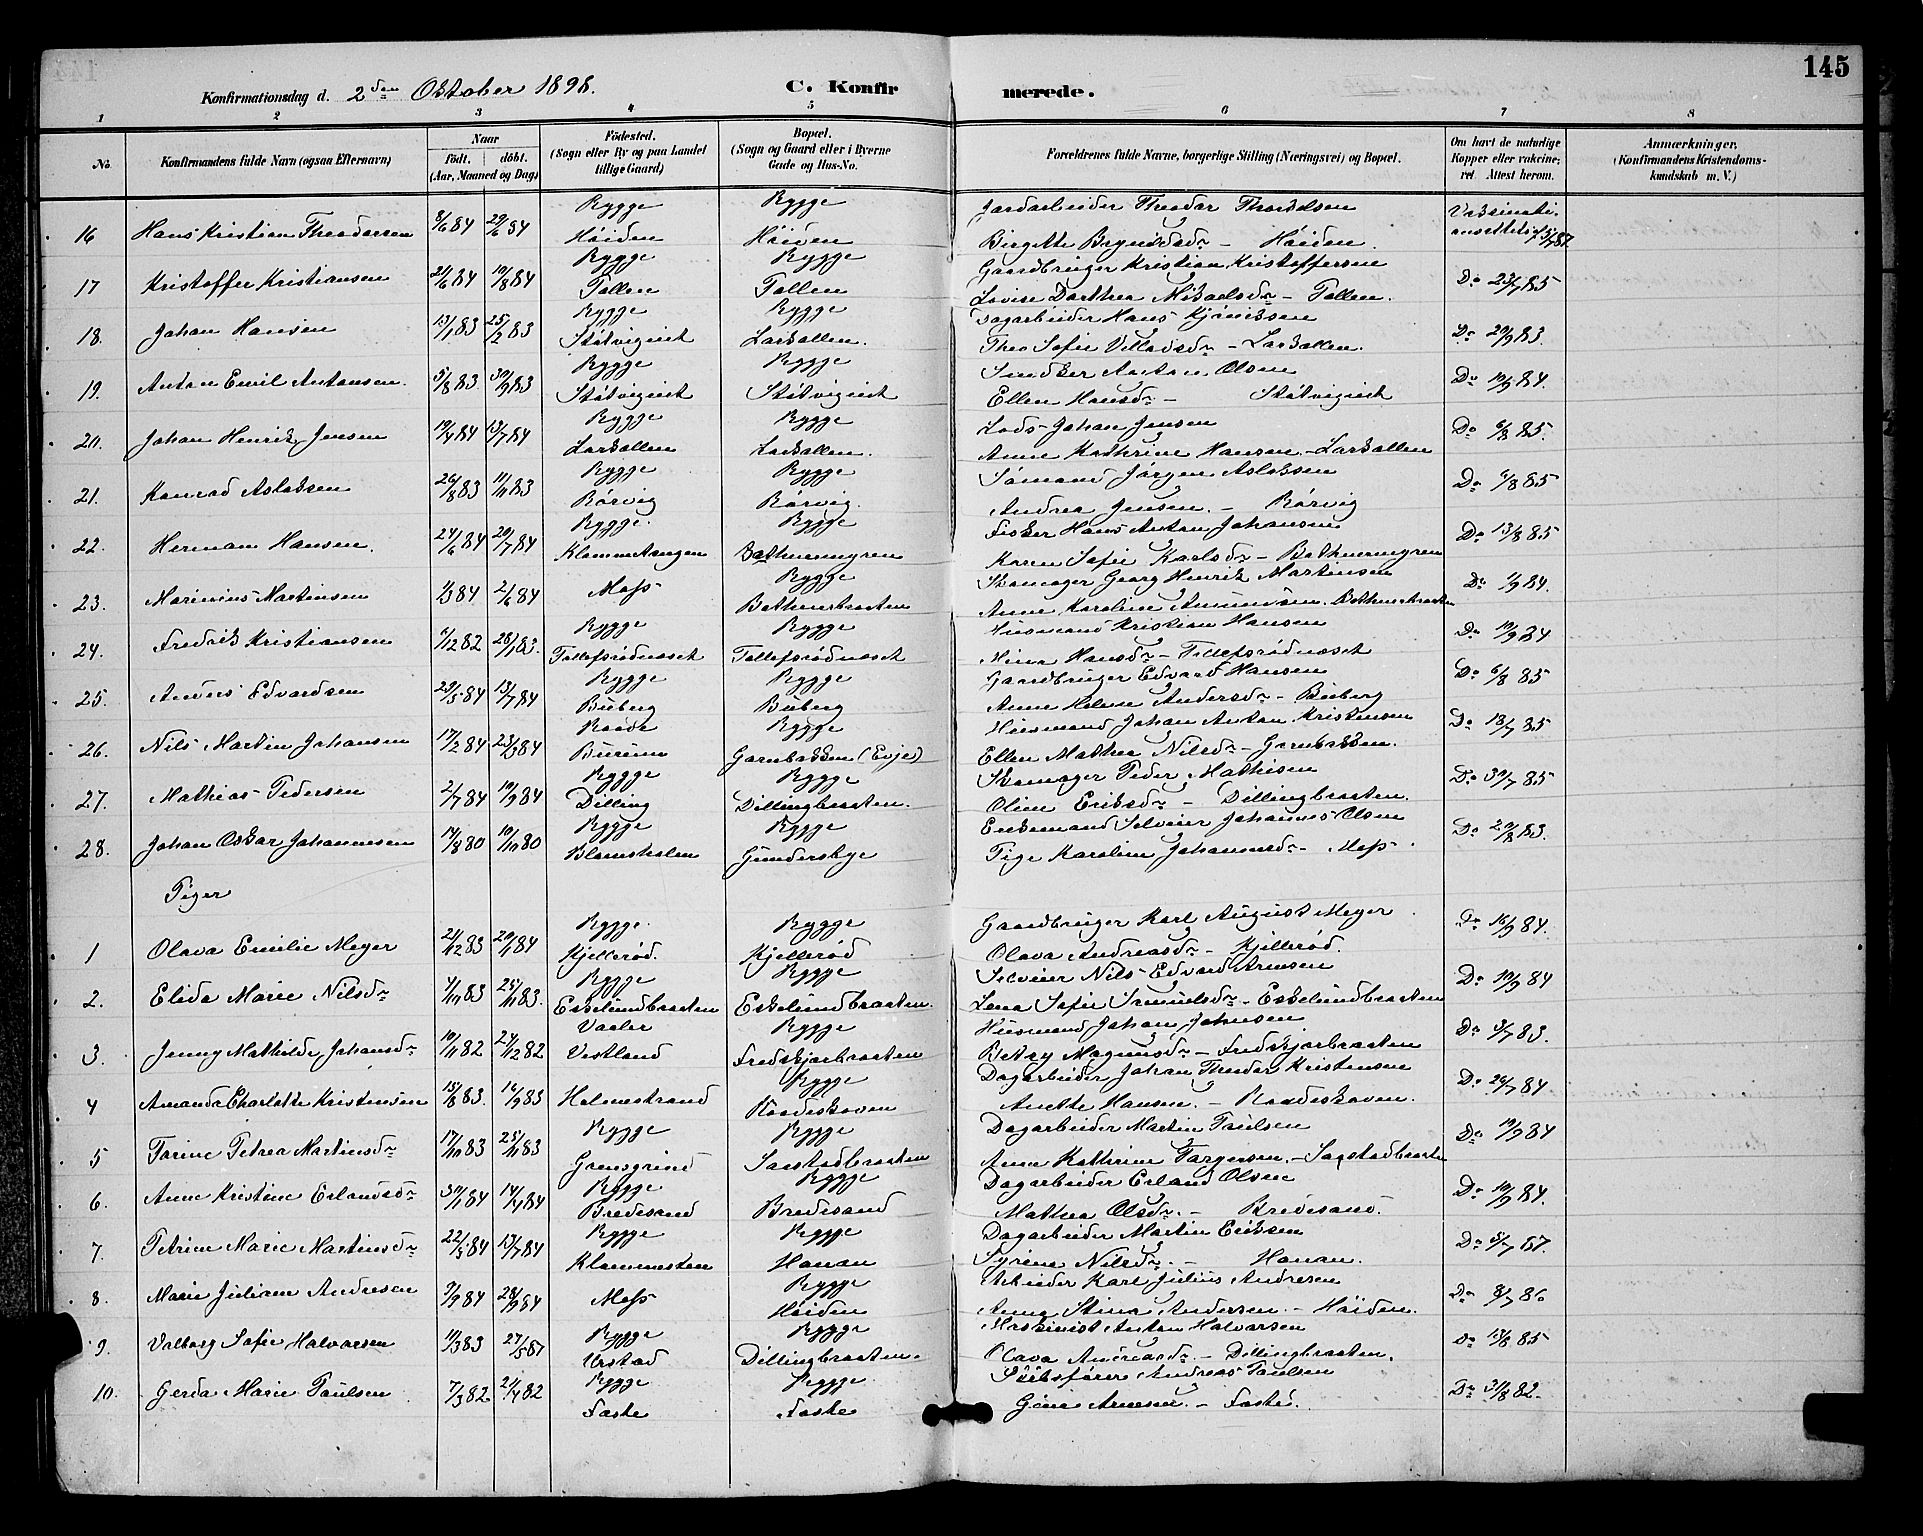 145
Konfirmationsdag d. 2den Oktober 1898.
C. Konfirmerede.
1 2 3 4 5 6 7 8
No.
Konfirmandens fulde Navn (ogsaa Efternavn)
Naar
födt. döbt.
(Aar, Maaned og Dag)
Födested.
(Sogn eller By og paa Landet tillige Gaard)
Bopæl.
(Sogn og Gaard eller i Byerne Gade og Hus-No.
Forældrenes fulde Navne, borgerlige Stilling (Næringsvei) og Bopæl.
Om havt de naturlige Kopper eller vakcineret. Attest herom.
Anmærkninger.
(Konfirmandens Kristendomskundskab m. V.)
16 Hans Kristian Theodorsen 8/6 84 29/6 84 Rygge Höiden Rygge Höiden Jordarbeider Theodor Thorkelsen
Birgitte Brynildsdr – Höiden.
17 Kristoffer Kristiansen 21/6 84 10/8 84 Rygge Tollen Rygge Tollen Gaardbruger Kristian Kristoffersen
Lovise Dorthea Mikaelsdr – Tollen. Do 23/7 85
18. Johan Hansen 13/1 83 25/2 83 Rygge Støtvigeiet Rygge Larkollen. Dagarbeider Hans
Thea Sofie Villadsdr – Larkollen. Do 20/9 83.
19. Anton Emil Antonsen. 5/8 83. 30/9 83 Rygge Støtvigeiet Rygge Støtvigeiet Snedker Anton Olsen
Ellen Hansdr – Støtvigeiet Do 10/9 84.
20. Johan Henrik Jensen 19/4 84 13/7 84 Rygge Larkollen Rygge Larkollen. Lods Johan Jensen
Anne Kathrine Hansen – Larkollen Do 6/8 85.
21. Konrad Aslaksen 26/8 83 11/11 83 Rygge Börvig Rygge Börvig. Sømand Jørgen Aslaksen
Andrea Jensen. – Börvig Do 6/8 85
22. Herman Hansen. 24/6 84 20/7 84 Rygge. Klommetangen Rygge Bothnermyren Fisker Hans Anton Johansen
Karen Sofie Karlsdr – Bothnermyren Do 13/8 85
23. Marinius Martinsen 1/3 84 2/6 84 Moss Rygge Bothnerbraaten Skomager Georg Henrik Martinsen
Anne Karoline Amundsen. Bothnerbraaten Do 1/9 84.
24. Fredrik Kristiansen 1/12 82 28/1 83. Rygge Tollefsrødnæset Rygge Tollefsrødnæset Husmand Kristian Hansen
Mina Hansdr – Tollefsrødnæset Do 10/9 84
25. Anders Edvardsen 29/5 84 13/7 84 Rygge Buberg Rygge Buberg Gaardbruger Edvard Hansen
Anne Helene Andersdr – Buberg Do 6/8 85
26. Nils Martin Johansen 17/2 84 23/3 84 Raade Rygge Garnbakken (Evje) Husmand Johan Anton Kristensen
Ellen Mathea Nilsdr – Garnbakken. Do 13/7 85
27. Mathias Pedersen 2/7 84 10/9 84 Rygge Dilling Rygge Dillingbraaten. Skomager Peder Mathisen
Oline Eriksdr – Dillingbraaten. Do 30/7 85
28. Johan Oskar Johannesen 14/8 80 10/10 80 Rygge Blomsholm Rygge Gundersbye Enkemand Selveier Johannes Olsen
Pige Karoline Johannesdr – Moss. Do 20/8 83.
Piger
1 Olava Emilie Meyer 21/12 83 20/1 84 Rygge. Kjellerød. Rygge Kjellerød Gaardbruger Karl August Meyer
Olava Andreasdr – Kjellerød. Do 16/9 84.
2. Elida Marie Nilsdr 4/10 83 25/11 83. Rygge Eskelundbraaten Rygge Eskelundbraaten. Selveier Nils Edvard Arnesen
Lena Sofie – Eskelundbraaten Do 10/9 84
3. Jenny Mathilde Johansdr 10/11 82 24/12 82 Vaaler Vestland Rygge Fredskjærbraaten Husmand Johan Johnsen
Betzy Magnusdr – Fredskjærbraaten Do 3/7 83.
4 Amanda Charlotte Kristensen 15/8 83. 16/9 83 Holmestrand Rygge Roadeskoven Dagarbeider Johan Theodor Kristensen
Anette Hansen. – Roadeskoven. Do 26/7 84
5 Torine Petrea Martinsdr 17/10 83 25/11 83 Rygge Grønsgrind Rygge Sogstadbraaten Dagarbeider Martin Paulsen
Anne Kathrine Torgersen. – Sogstadbraaten Do 10/9 84
6 Anne Kristine Erlandsdr 30/1 84 14/4 84 Rygge Bredesand Rygge Bredesand Dagarbeider Erland Olsen
Mathea Olsdr. – Bredesand. Do 10/9 84.
7. Petrine Marie Martinsdr 22/5 84 13/7 84 Rygge Klommesten Rygge Honan Dagarbeider Martin Eriksen
Syrine Nilsdr. – Honan. Do 5/7 87.
8. Marie Juliane Andresen 9/9 84 28/9 84 Moss Rygge Höiden Arbeider Karl Julius Andresen
Anna Stina Andersen. – Höiden. Do 8/7 86
9. Valborg Sofie Halvorsen 11/3 83 27/5 87 Rygge Urstad Rygge Dillingbraaten. Maskinist Anton Halvorsen
Olava Andreasdr – Dillingbraaten. Do 13/8 85
10. Gerda Marie Paulsen 7/3 82 24/4 82 Rygge Faste Rygge Faste Skibsfører Andreas Paulsen
Gina Arnesen. – Faste. Do 31/8 82.